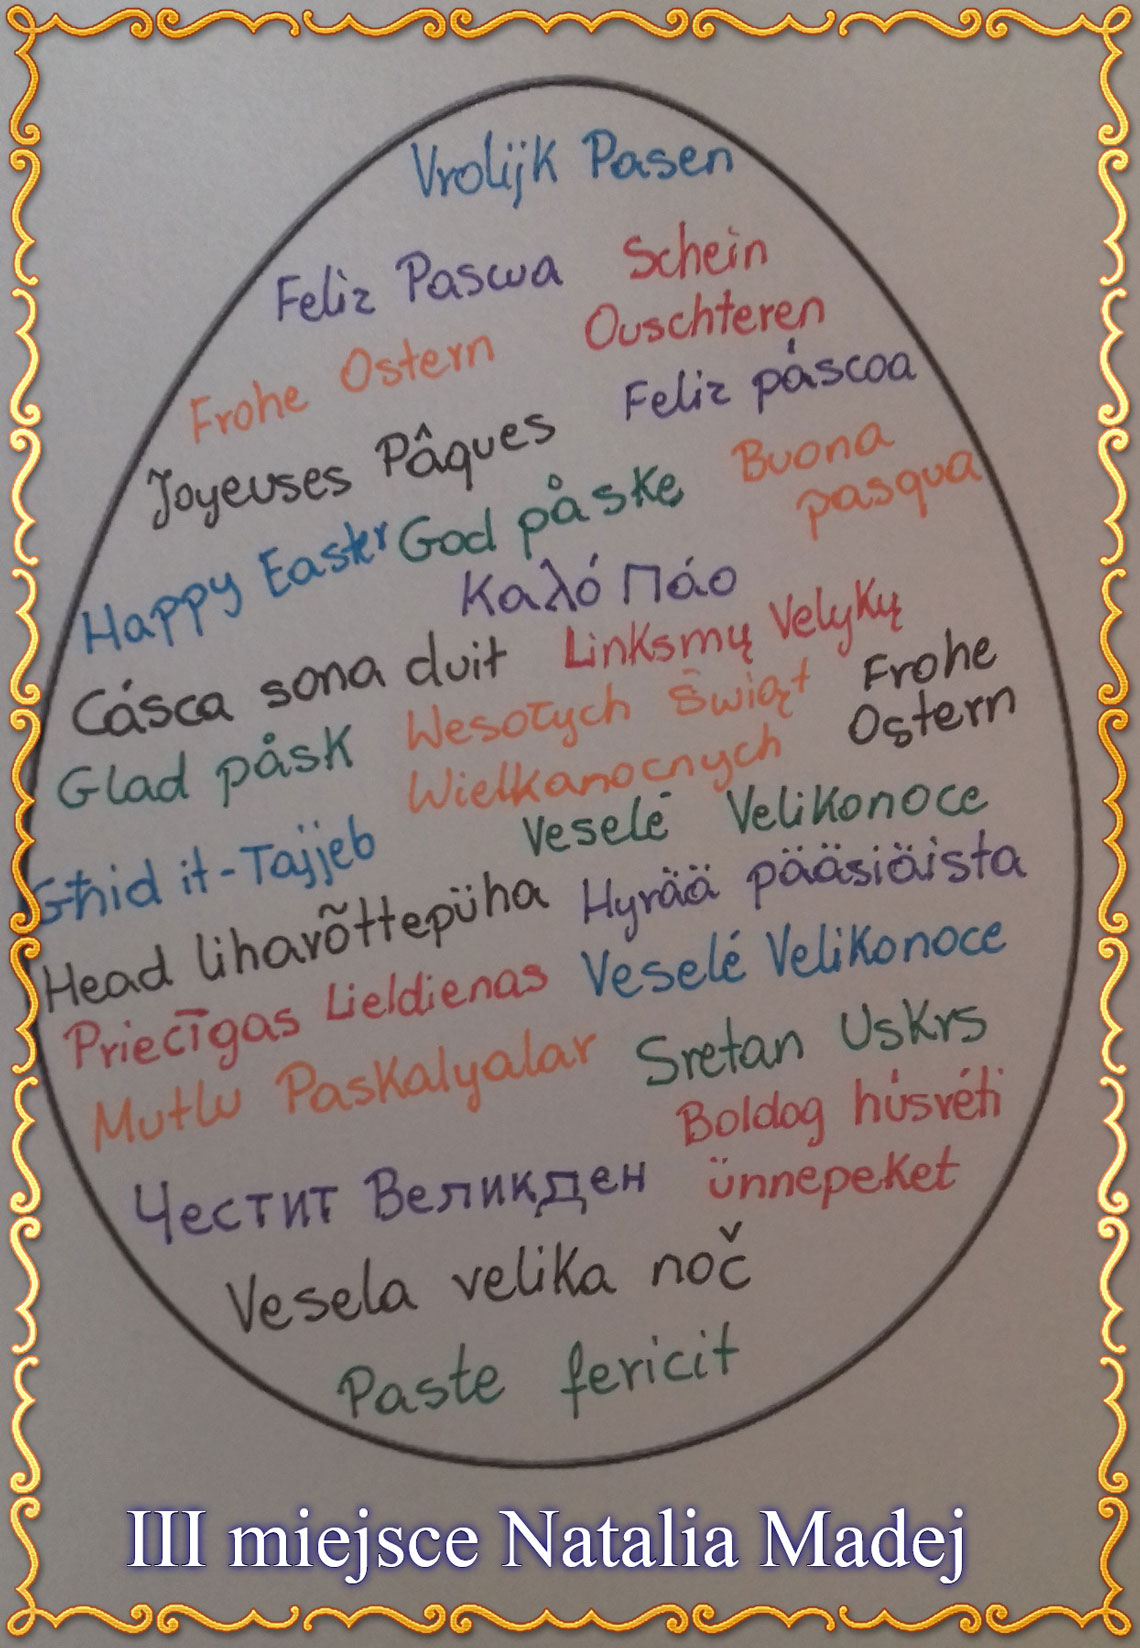 Vrolijk Pasen
Feliz Pascua
Schein
Ouschteren
Frohe Ostern
Feliz páscoa
Joyeuses Pâques
Buona
pasqua
Happy Easter
God påske
Καλό Πάσ
Cásca sona duit
Linksmų Velykų
Glad påsk
Wesołych Świąt
Wielkanocnych
Frohe
Ostern
Għid it-Tajjeb
Veselé Velikonoce
Head lihavõttepüha
Hyvää pääsiäistä
Priecīgas Lieldienas
Veselé Velikonoce
Mutlu Paskalyalar
Sretan Uskrs
Boldog húsvéti
ünnepeket
Честит Великден
Vesela velika noč
Paste fericit
III miejsce Natalia Madej